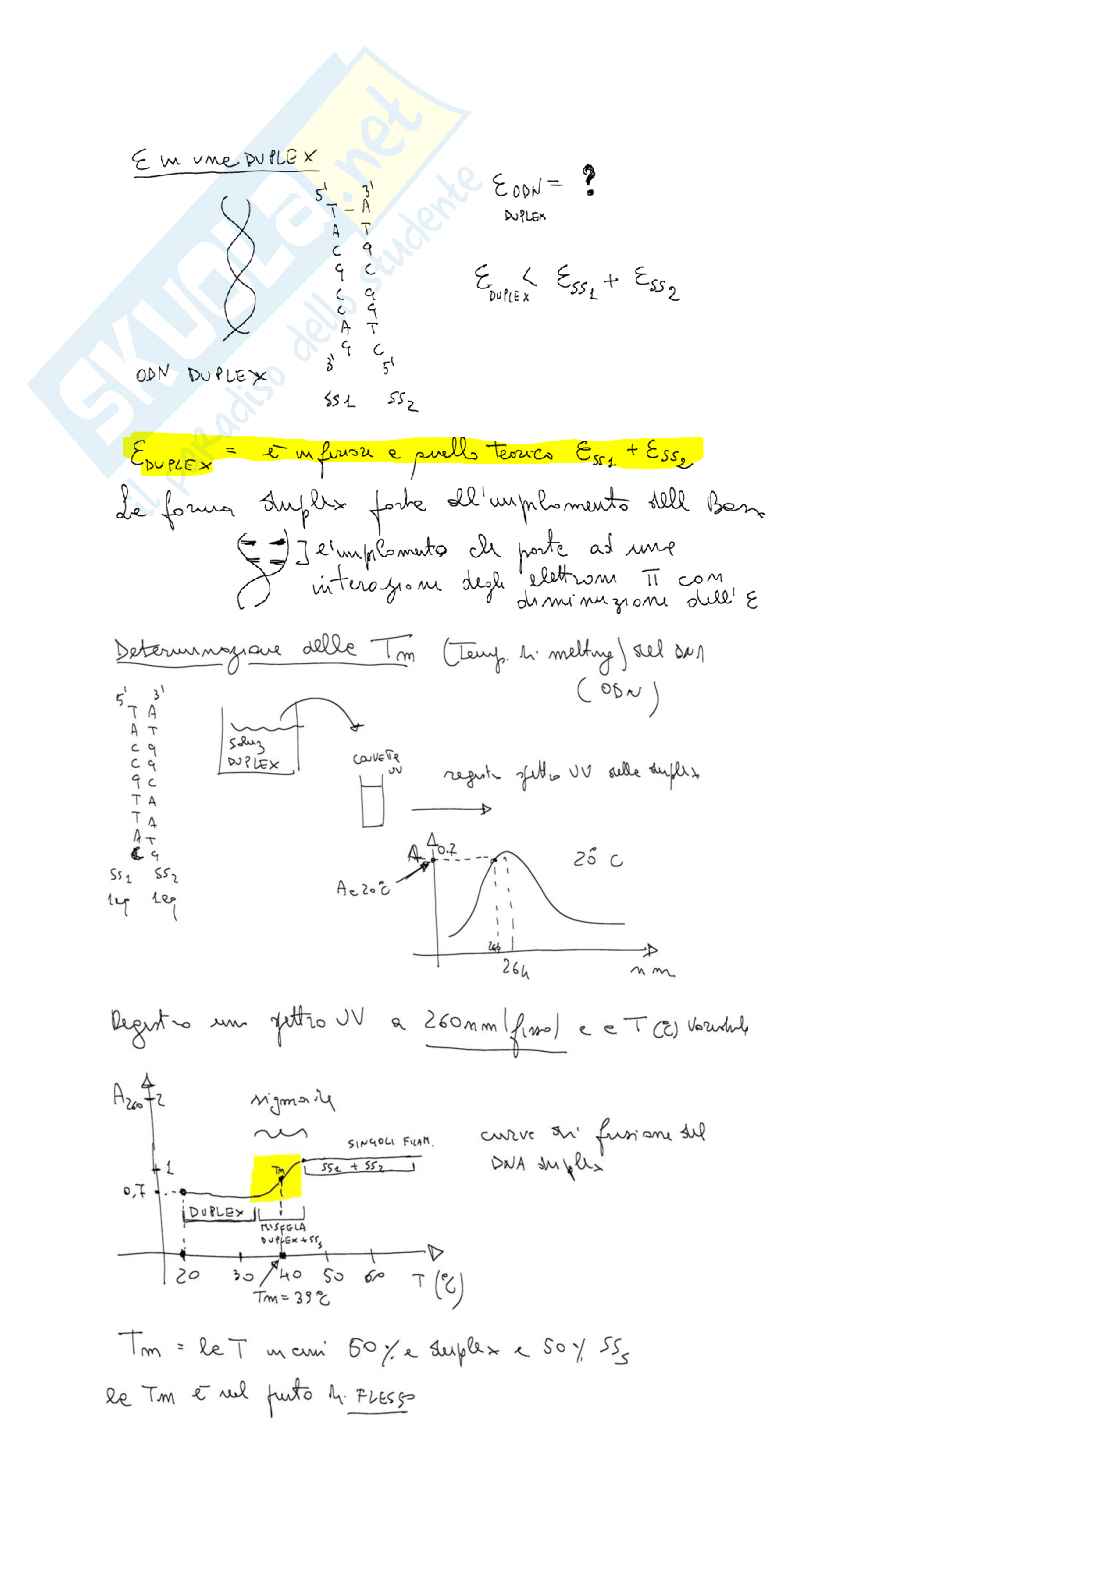 SKUOLA.net
il paradiso dello studente
E in une DUPLEX
5' 3'
T – A
A T
C G
G C
C G
C G
A T
G C
3' 5'
SS1 SS2
ODN DUPLEX
ε ODN DUPLEX = ?
ε DUPLEX < ε SS1 + ε SS2
ε DUPLEX = è inferiore a quello teorico ε SS1 + ε SS2
La forma duplex porta all'impilamento delle Basi
e l'impilamento che porta ad una
interazione degli elettroni π con
diminuzione dell'ε
Determinazione della Tm (Temp. di melting) del DNA
(ODN)
5' 3'
T A
A T
C G
C G
G C
T A
T A
A T
C G
SS1 SS2
1eq 1eq
Soluz
DUPLEX
CUVETTA
UV
registro spettro UV della duplex
A 0.7
A a 20°C
20° C
264
nm
Registro uno spettro UV a 260nm (fisso) e a T (°C) variabile
A260 2
sigmoide
SINGOLI FILAM.
SS1 + SS2
1
Tm
0,7
DUPLEX
MISCELA
DUPLEX + SSs
20 30 40 50 60 T (°C)
Tm = 39°C
curva di fusione del
DNA duplex
Tm = la T in cui 50% è duplex e 50% SSs
la Tm è nel punto di FLESSO